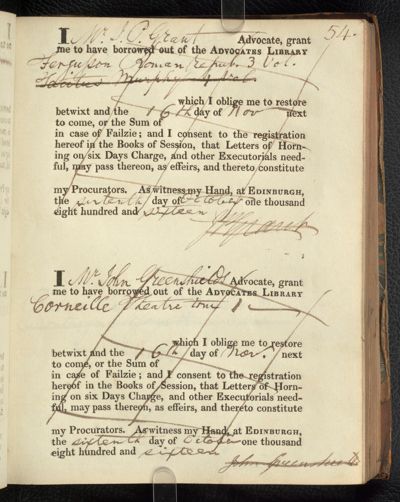 54.
I Mr. J. P. Grant Advocate, grant
me to have borrowed out of the ADVOCATES LIBRARY
Ferguson Roman repub. 3 Vol.
Tacitus Murphy 4 Vol.
which I oblige me to restore
betwixt and the 16th day of Nov next
to come, or the Sum of
in case of Failzie; and I consent to the registration
hereof in the Books of Session, that Letters of Horn-
ing on six Days Charge, and other Executorials need-
ful, may pass thereon, as effeirs, and thereto constitute
my Procurators. As witness my Hand, at EDINBURGH,
the sixteenth day of October one thousand
eight hundred and sixteen
J P Grant
I Mr. John Greenshields Advocate, grant
me to have borrowed out of the ADVOCATES LIBRARY
Corneille Theatre tom 1
which I oblige me to restore
betwixt and the 16th day of Nov. next
to come, or the Sum of
in case of Failzie; and I consent to the registration
hereof in the Books of Session, that Letters of Horn-
ing on six Days Charge, and other Executorials need-
ful, may pass thereon, as effeirs, and thereto constitute
my Procurators. As witness my Hand, at EDINBURGH,
the sixteenth day of October one thousand
eight hundred and sixteen
John Greenshields